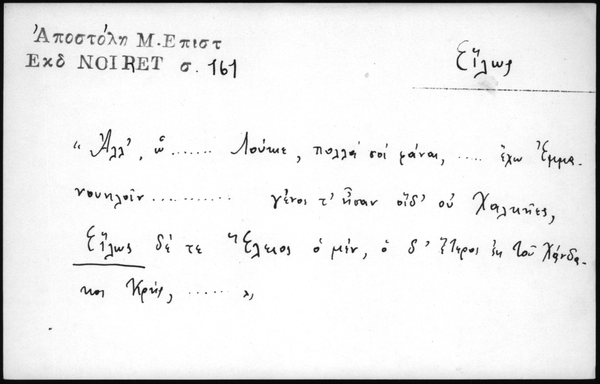 Ἀποστόλη Μ. Επιστ
Εκδ NOIRET σ. 161
Εἵλως
"Ἀλλ', ὦ ....... Λοῦκε, πολλά σοί φάναι, .... ἔχω Ἐμμα-
νουηλοῖν ........... γένος τ' ἦσαν οἵδ' οὐ Χαλκῆες,
Εἵλως δέ τε Ἕλειος ὁ μέν, ὁ δ' ἕτερος ἐκ τοῦ Χάνδα-
κος Κρής, ...... "